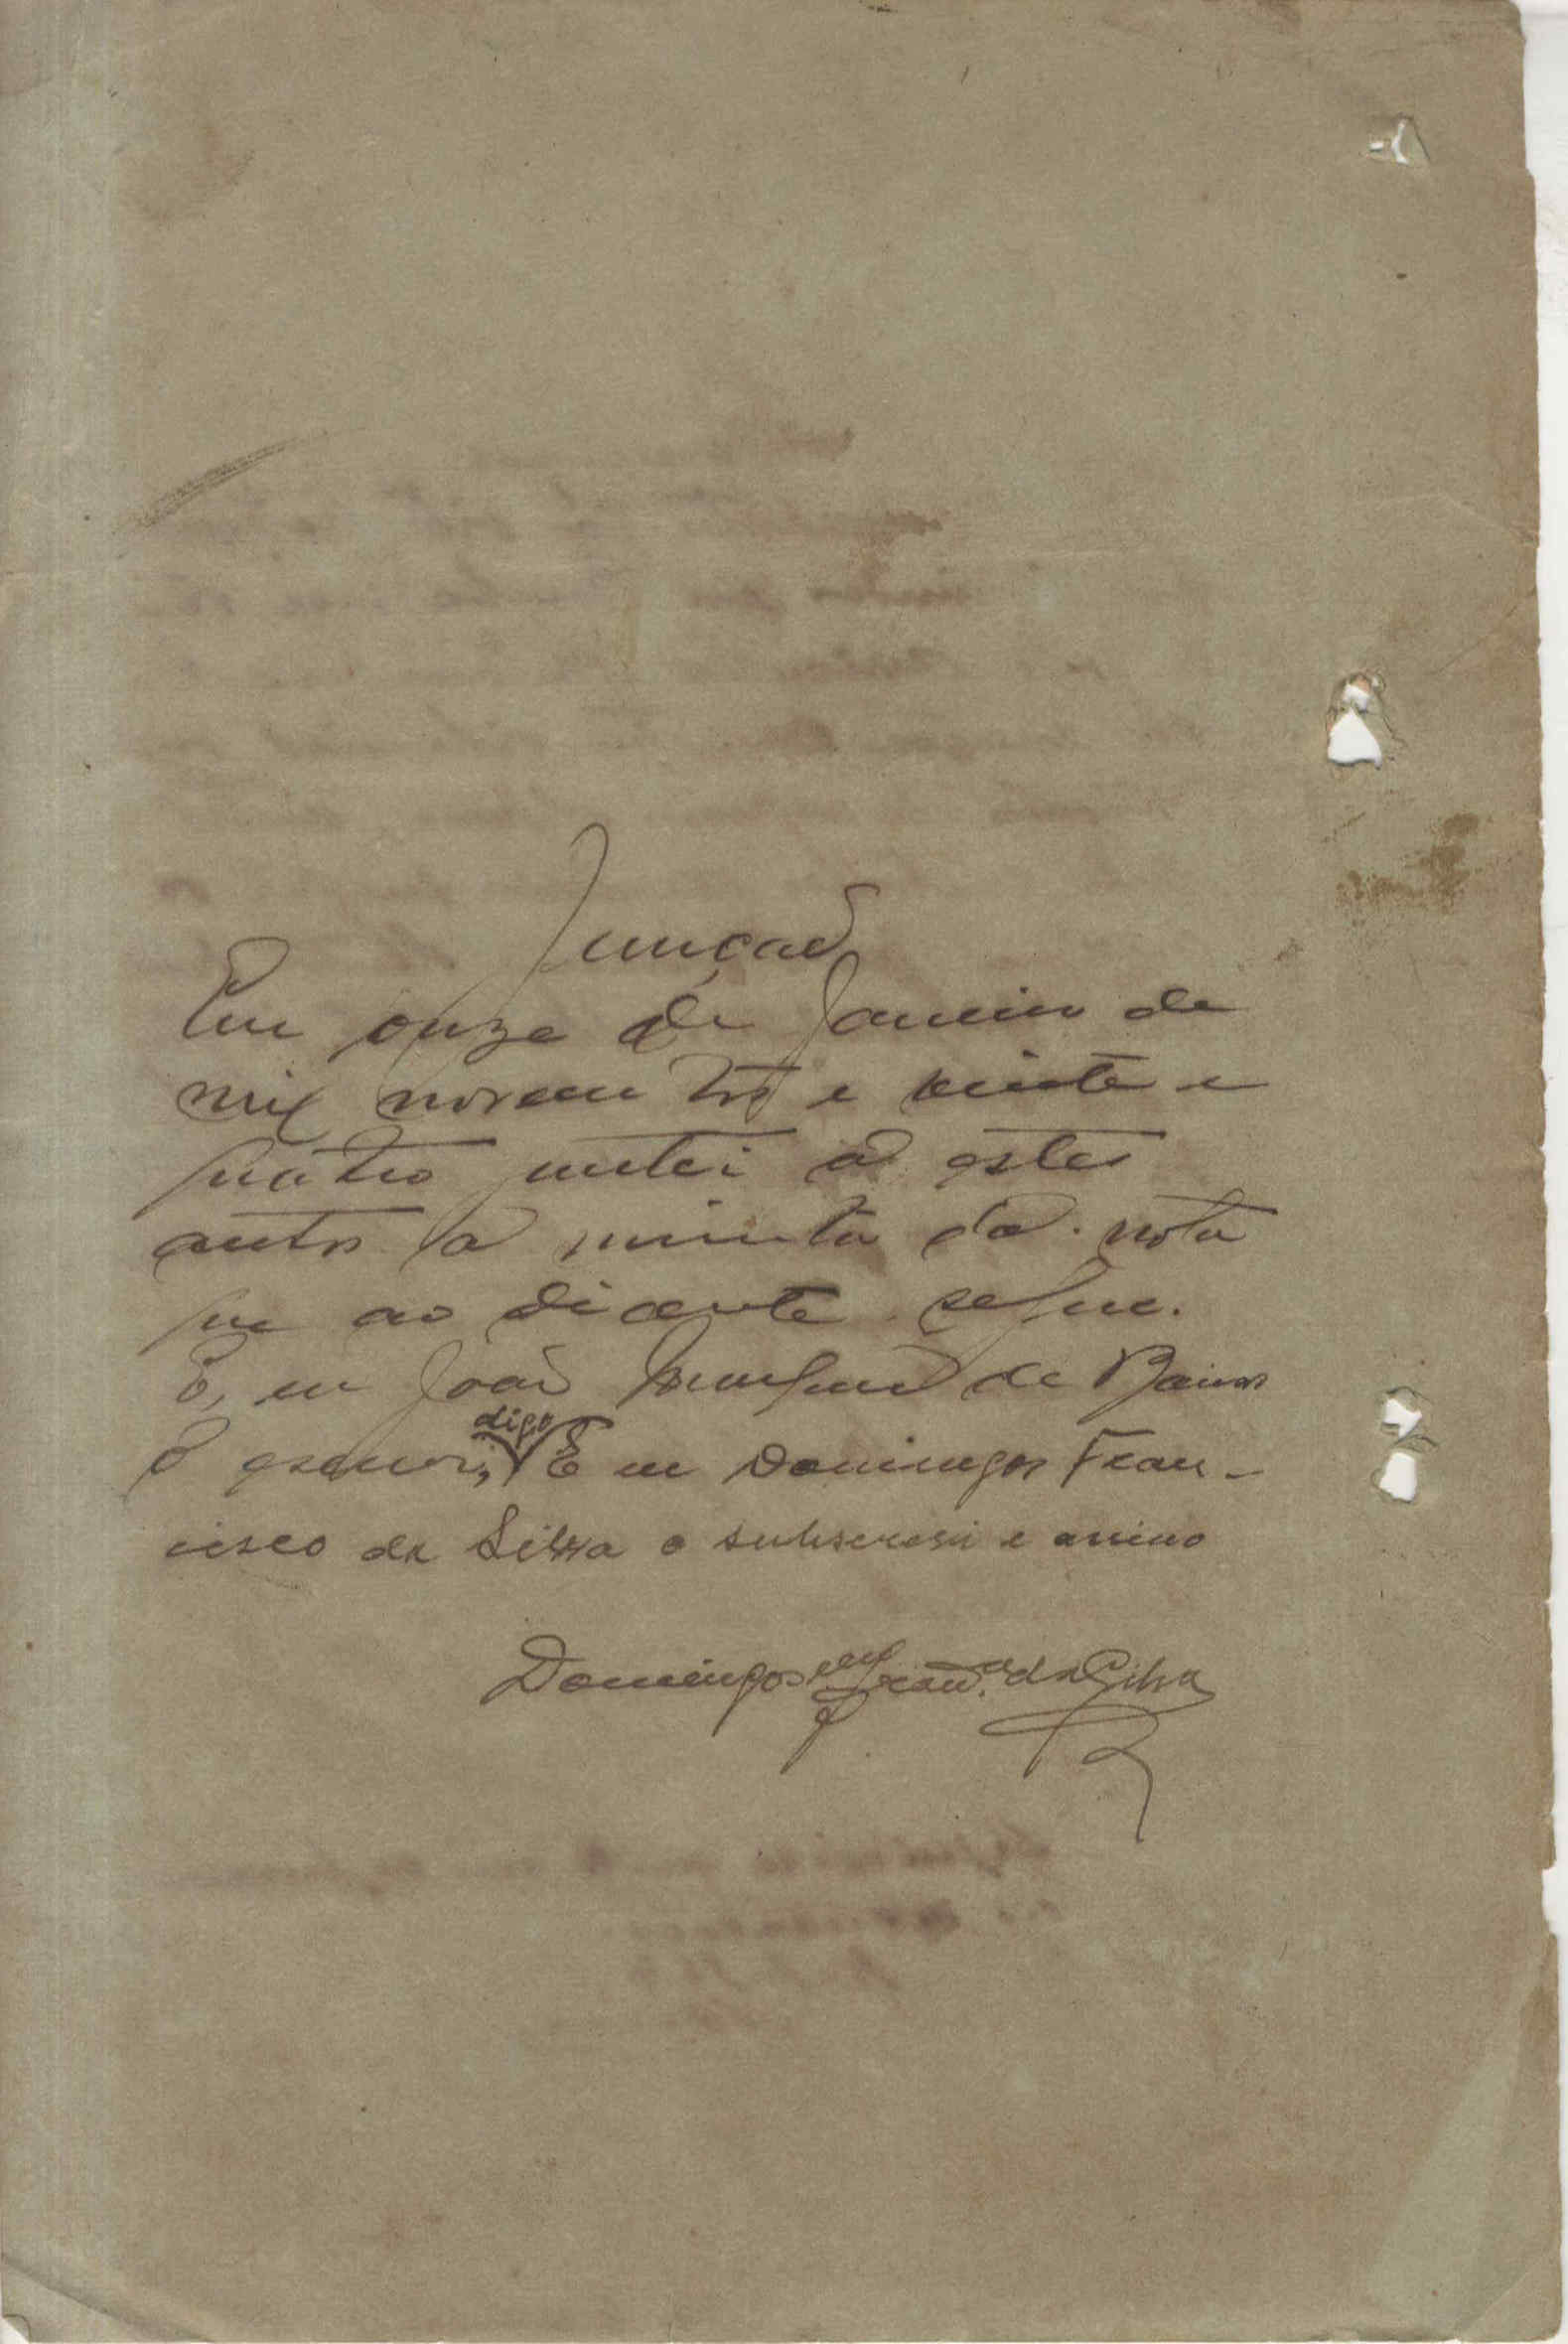 Junção
Em onze de Janeiro de
mil novecentos e vinte e
quatro juntei a estes
autos a minuta da nota
que ao diante segue.
E, eu João de Barros
o escrevi, digo E eu Domingos Fran-
cisco da Silva o subscrevi e assino
Domingos Franc.co da Silva